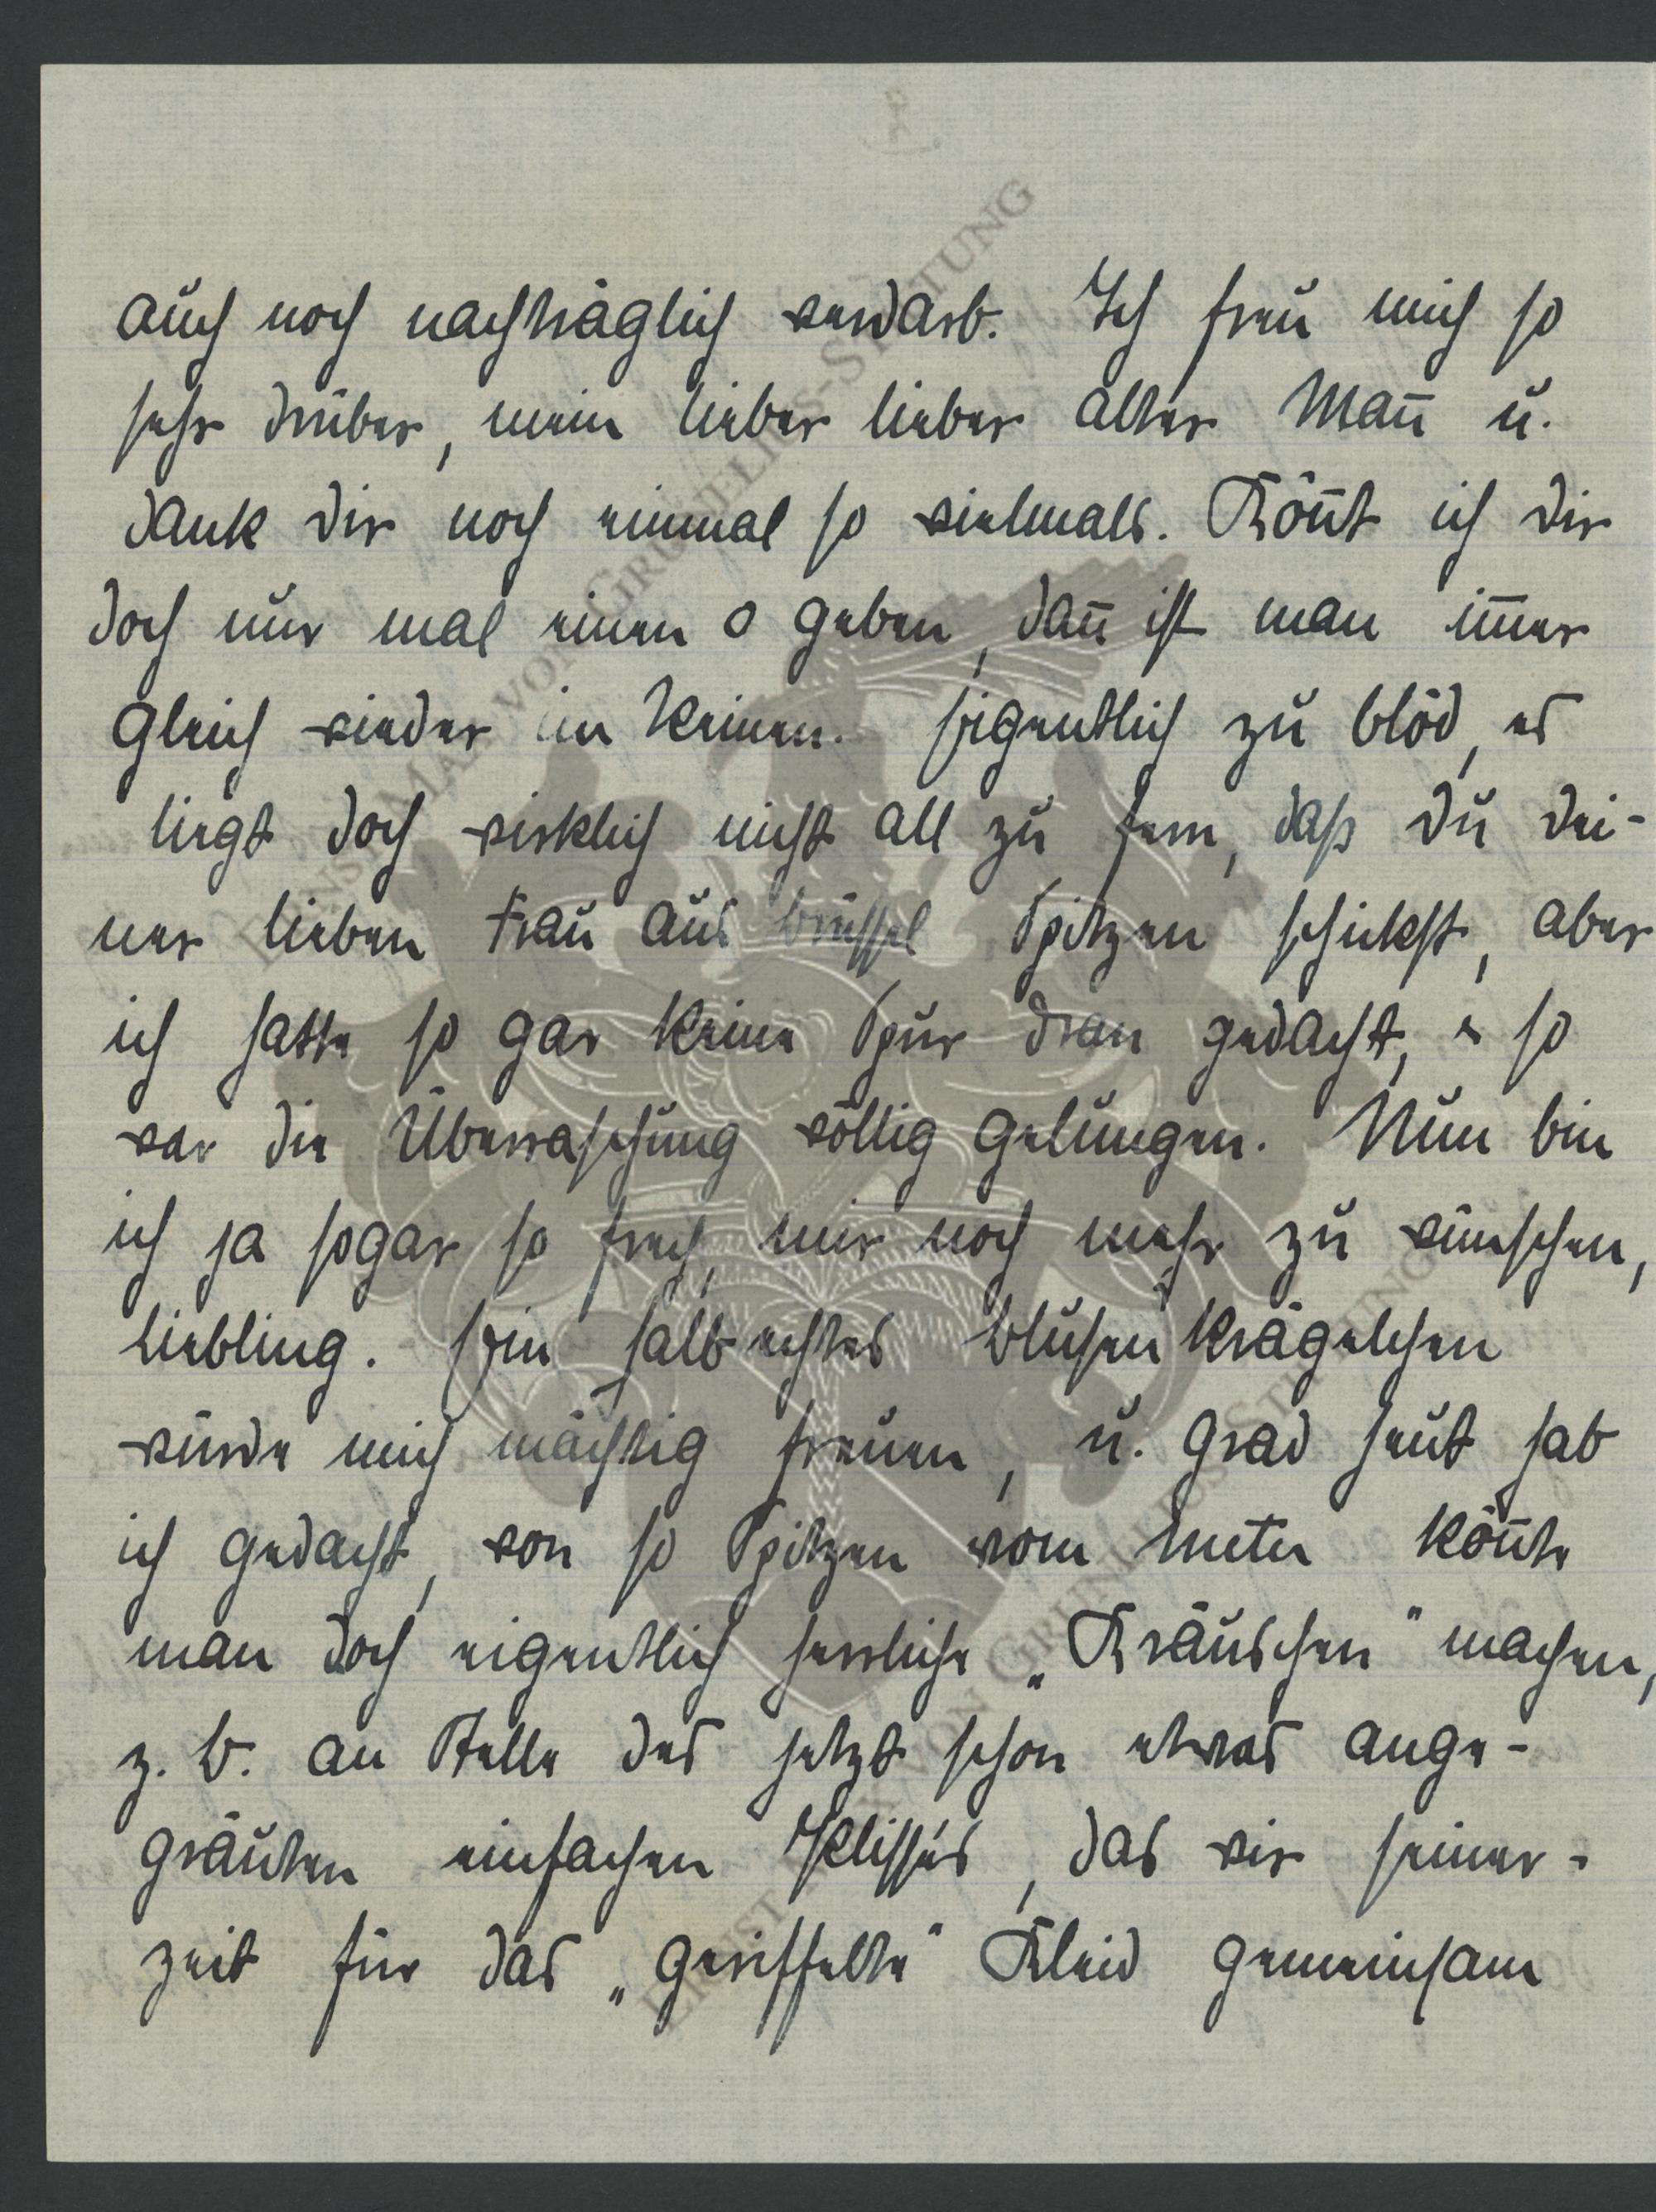 auch noch nachträglich verdarb. Ich freu mich so
sehr drüber, mein lieber lieber alter Man̄ u.
dank dir noch einmal so vielmals. Kön̄t ich dir
doch nur mal einen o geben, dan̄ ist man im̄er
gleich wieder im Reinen. Eigentlich zu blöd, es
liegt doch wirklich nicht all zu fern, daß du dei-
ner lieben Frau aus Brüssel Spitzen schickst, aber
ich hatte so gar keine Spur dran gedacht, & so
war die Überraschung völlig gelungen. Nun bin
ich ja sogar so frech, mir noch mehr zu wünschen,
Liebling. Ein halb echtes Blusenkrägelchen
würde mich mächtig freuen, u. grad heut hab
ich gedacht, von so Spitzen vom Meter kön̄te
man doch eigentlich herrliche „Kräuschen“ machen,
z. B. an Stelle des jetzt schon etwas ange-
gräuten einfachen Plissés, das wir seiner-
zeit für das „geriffelte“ Kleid gemeinsam
ERNST MAX VON GRUNELIUS-STIFTUNG
ERNST MAX VON GRUNELIUS-STIFTUNG